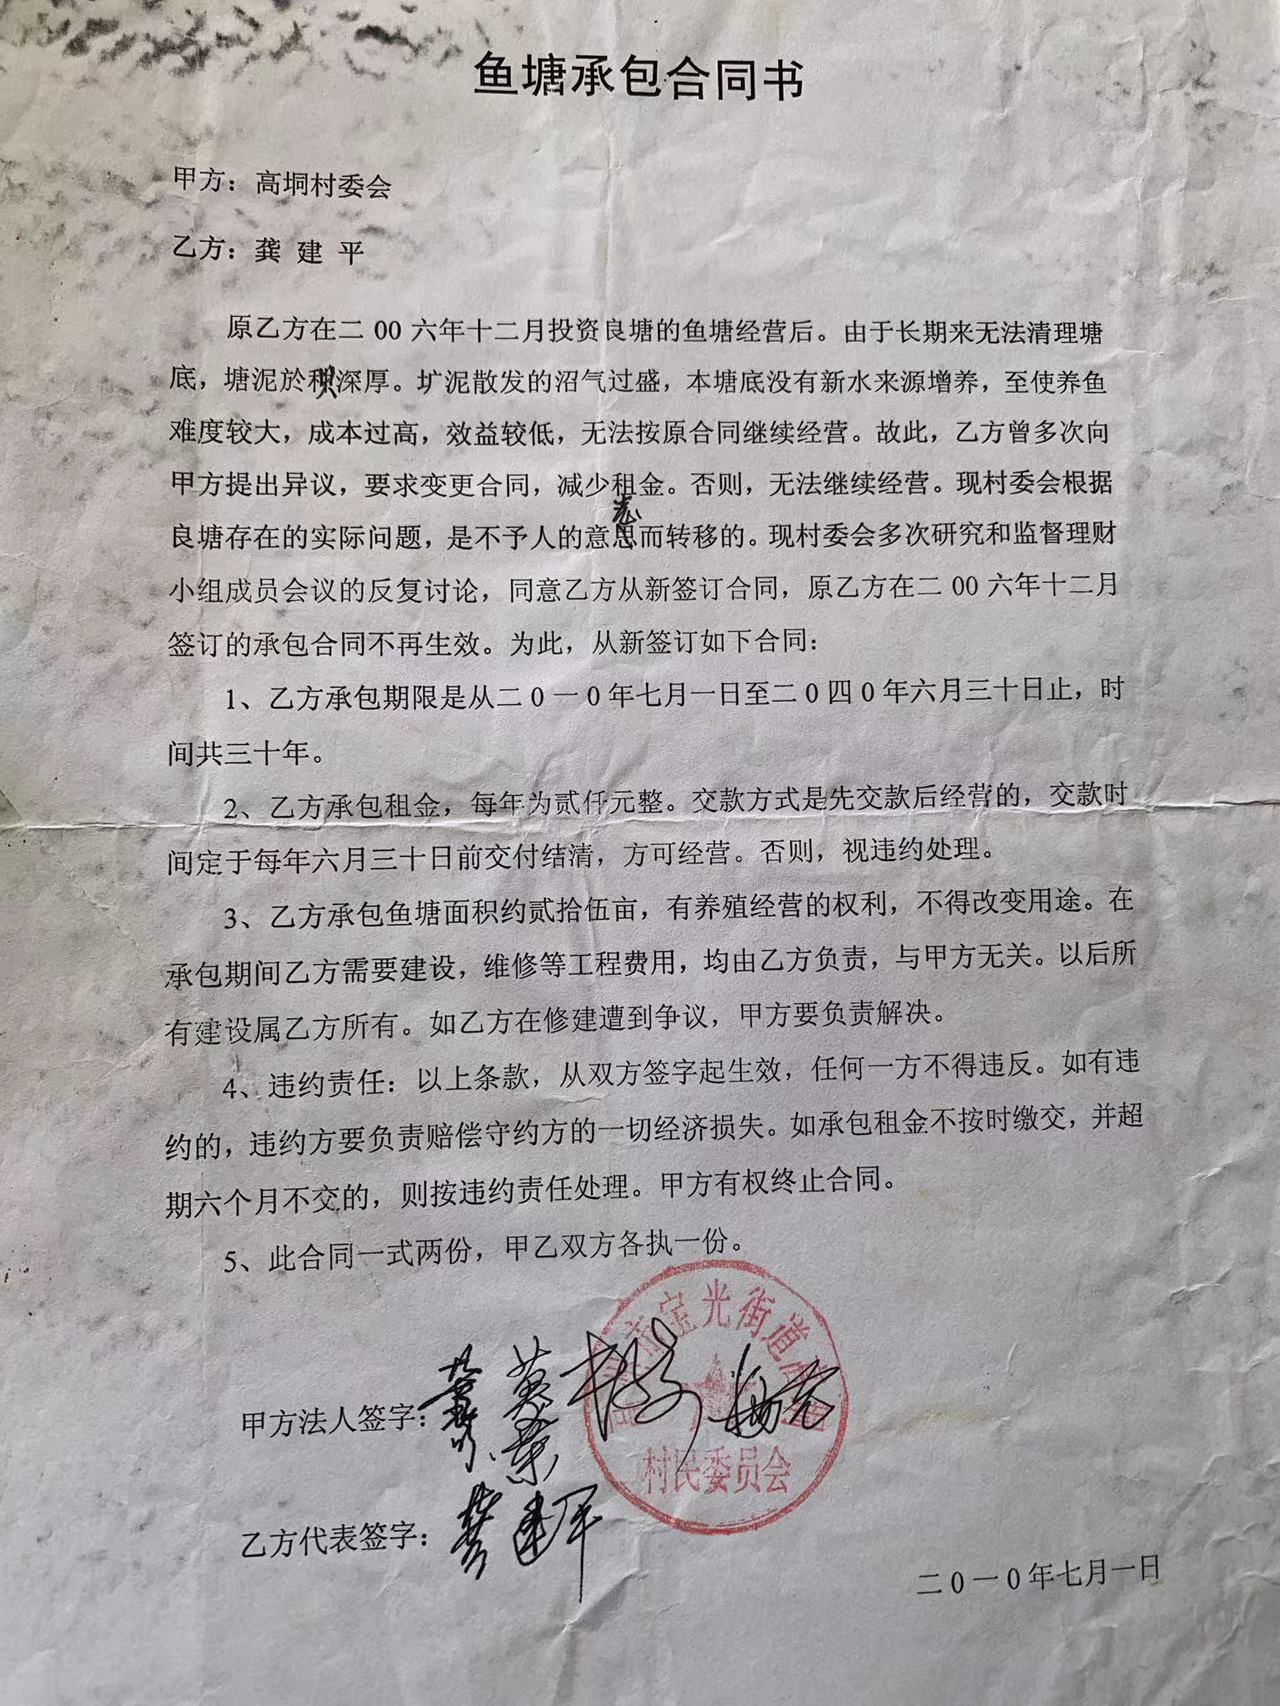 鱼塘承包合同书
甲方：高垌村委会
乙方：龚 建 平
原乙方在二 00 六年十二月投资良塘的鱼塘经营后。由于长期来无法清理塘
底，塘泥於积深厚。圹泥散发的沼气过盛，本塘底没有新水来源增养，至使养鱼
难度较大，成本过高，效益较低，无法按原合同继续经营。故此，乙方曾多次向
甲方提出异议，要求变更合同，减少租金。否则，无法继续经营。现村委会根据
良塘存在的实际问题，是不予人的意志而转移的。现村委会多次研究和监督理财
小组成员会议的反复讨论，同意乙方从新签订合同，原乙方在二 00 六年十二月
签订的承包合同不再生效。为此，从新签订如下合同：
1、乙方承包期限是从二 0 一 0 年七月一日至二 0 四 0 年六月三十日止，时
间共三十年。
2、乙方承包租金，每年为贰仟元整。交款方式是先交款后经营的，交款时
间定于每年六月三十日前交付结清，方可经营。否则，视违约处理。
3、乙方承包鱼塘面积约贰拾伍亩，有养殖经营的权利，不得改变用途。在
承包期间乙方需要建设，维修等工程费用，均由乙方负责，与甲方无关。以后所
有建设属乙方所有。如乙方在修建遭到争议，甲方要负责解决。
4、违约责任：以上条款，从双方签字起生效，任何一方不得违反。如有违
约的，违约方要负责赔偿守约方的一切经济损失。如承包租金不按时缴交，并超
期六个月不交的，则按违约责任处理。甲方有权终止合同。
5、此合同一式两份，甲乙双方各执一份。
市宝光街道
村民委员会
甲方法人签字：
乙方代表签字：龚建平
二 0 一 0 年七月一日